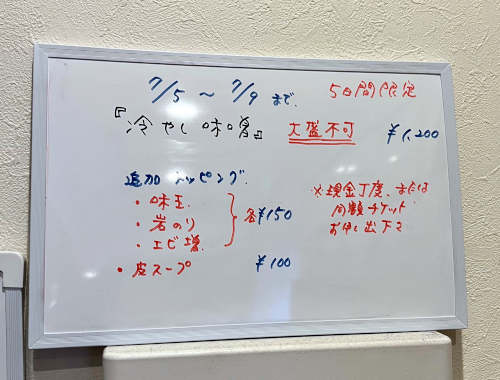 7/5 ～ 7/9 まで. 5日間限定
『冷やし味噌』 大盛不可 ¥1,200
追加トッピング.
・味玉.
・岩のり 各¥150
・エビ増.
・皮スープ ¥100
※現金丁度、または
同額チケット
お申し出下さ